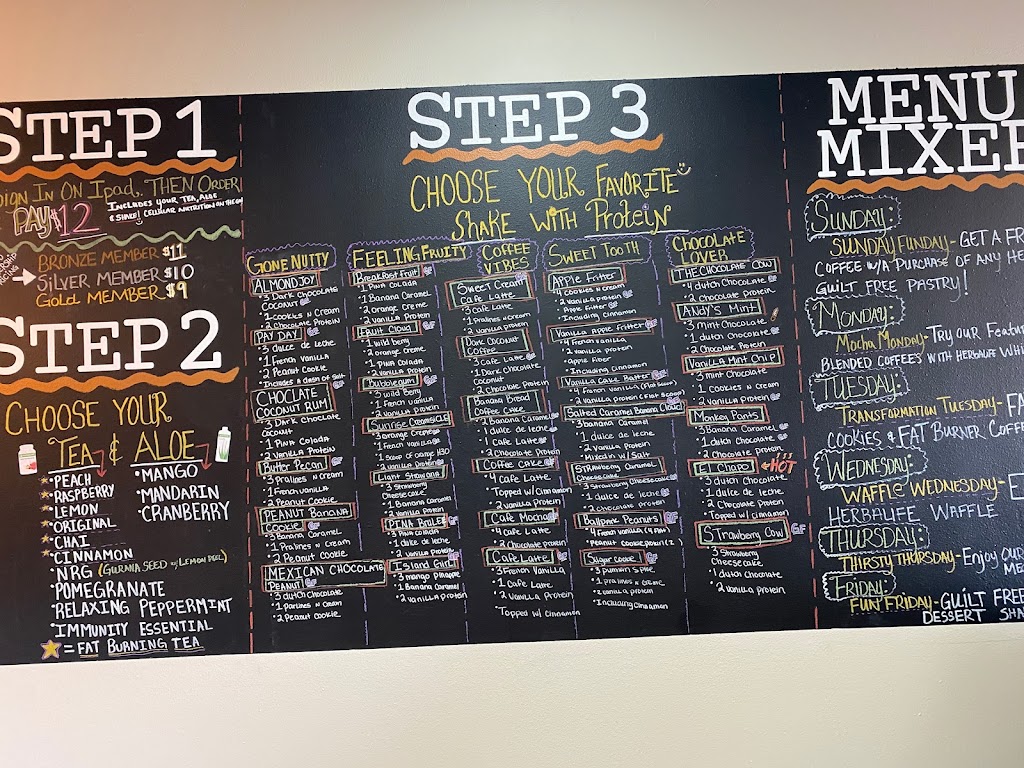 STEP 1
SIGN IN ON IPAD, THEN ORDER
PAY $12
INCLUDES YOUR TEA, ALOE
& SHAKE!
BRONZE MEMBER $11
SILVER MEMBER $10
GOLD MEMBER $9
STEP 2
CHOOSE YOUR
TEA & ALOE
PEACH
RASPBERRY
LEMON
ORIGINAL
CHAI
CINNAMON
NRG (GURNIA SEED w/ LEMON PEEL)
POMEGRANATE
RELAXING PEPPERMINT
IMMUNITY ESSENTIAL
= FAT BURNING TEA
MANGO
MANDARIN
CRANBERRY
STEP 3
CHOOSE YOUR FAVORITE
SHAKE WITH PROTEIN
GONE NUTTY
ALMOND JOY
3 Dark Chocolate
Coconut
1 Cookies N Cream
2 Chocolate Protein
PAY DAY
3 dulce de leche
1 French Vanilla
2 Peanut Cookie
Includes a dash of salt
CHOCLATE
COCONUT RUM
3 Dark Chocolate
Coconut
1 Pina Colada
2 Vanilla Protein
Butter Pecan
3 Pralines n Cream
1 French Vanilla
2 Peanut Cookie
PEANUT BANANA
COOKIE
3 Banana Caramel
1 Pralines n Cream
2 Peanut Cookie
MEXICAN CHOCOLATE
PEANUT
3 dutch Chocolate
1 Parlines N Cream
2 Peanut Cookie
FEELING FRUITY
Breakfast Fruit
1 Pina Colada
1 Banana Caramel
2 orange Creme
2 Vanilla Protein
FRUIT Cloud
1 wild berry
2 orange creme
1 Pina Colada
2 Vanilla Protein
Bubblegum
3 Wild Berry
1 French Vanilla
2 Vanilla Protein
Sunrise Creamsicle
3 orange Creme
1 French Vanilla
1 Scoop of orange H30
2 Vanilla Protein
Light
3 Strawberry
Cheesecake
1 Banana Caramel
2 Vanilla Protein
PINA BRULEE
3 Pina Colada
1 dulce de leche
2 Vanilla Protein
Island Girl
3 mango Pinapple
1 Banana Caramel
2 Vanilla Protein
COFFEE
VIBES
Sweet Cream
Cafe Latte
3 Cafe Latte
1 Pralines n cream
2 Vanilla Protein
Dark Coconut
Coffee
3 Cafe Latte
1 Dark Chocolate
Coconut
2 Chocolate Protein
Banana Bread
Coffee Cake
2 Banana Caramel
1 dulce de leche
1 Cafe Latte
2 Chocolate Protein
Coffee Cake
4 Cafe Latte
Topped w/ Cinnamon
2 Vanilla Protein
Cafe Mocha
4 Cafe Latte
2 Chocolate Protein
Cafe Latte
3 French Vanilla
1 Cafe Latte
2 Vanilla Protein
Topped w/ Cinnamon
SWEET TOOTH
Apple Fritter
4 Cookies N Cream
2 Vanilla Protein
Apple Fiber
Including Cinnamon
Vanilla Apple Fritter
4 French Vanilla
2 Vanilla Protein
Apple Fiber
Including Cinnamon
Vanilla Cake Batter
4 French Vanilla (Flat Scoop)
2 Vanilla Protein (Flat Scoop)
Salted Caramel Banana Cloud
3 Banana Caramel
1 dulce de leche
2 Vanilla Protein
Mixed in w/ Salt
Strawberry Caramel
Cheesecake
3 Strawberry Cheesecake
1 dulce de leche
2 Chocolate Protein
Ballpark Peanuts
4 French Vanilla
Peanut Cookie
Sugar Cookie
3 Pumpkin Spice
1 Pralines n Creme
2 Vanilla Protein
Including Cinnamon
CHOCOLATE
LOVER
THE CHOCOLATE COW
4 dutch Chocolate
2 Chocolate Protein
ANDY'S MINT
3 mint Chocolate
1 dutch Chocolate
2 Chocolate Protein
Vanilla Mint Chip
3 mint Chocolate
1 Cookies N Cream
2 Vanilla Protein
Monkey Pants
3 Banana Caramel
1 dutch Chocolate
2 Chocolate Protein
El Chapo HOT
3 dutch Chocolate
1 dulce de leche
2 Chocolate Protein
Topped w/ Cinnamon
Strawberry Cow GF
3 Strawberry
Cheesecake
1 dutch Chocolate
2 Vanilla Protein
MENU
MIXER
SUNDAY:
SUNDAY FUNDAY - GET A FR
COFFEE W/A PURCHASE OF ANY HE
GUILT FREE PASTRY!
MONDAY:
MOCHA MONDAY - TRY OUR FEATUR
BLENDED COFFEES WITH HERBALIFE WHI
TUESDAY:
TRANSFORMATION TUESDAY - FA
COOKIES & FAT BURNER COFF
WEDNESDAY:
WAFFLE WEDNESDAY - E
HERBALIFE WAFFLE
THURSDAY:
THIRSTY THURSDAY - ENJOY OUR
ME
FRIDAY:
FUN FRIDAY - GUILT FREE
DESSERT SHA